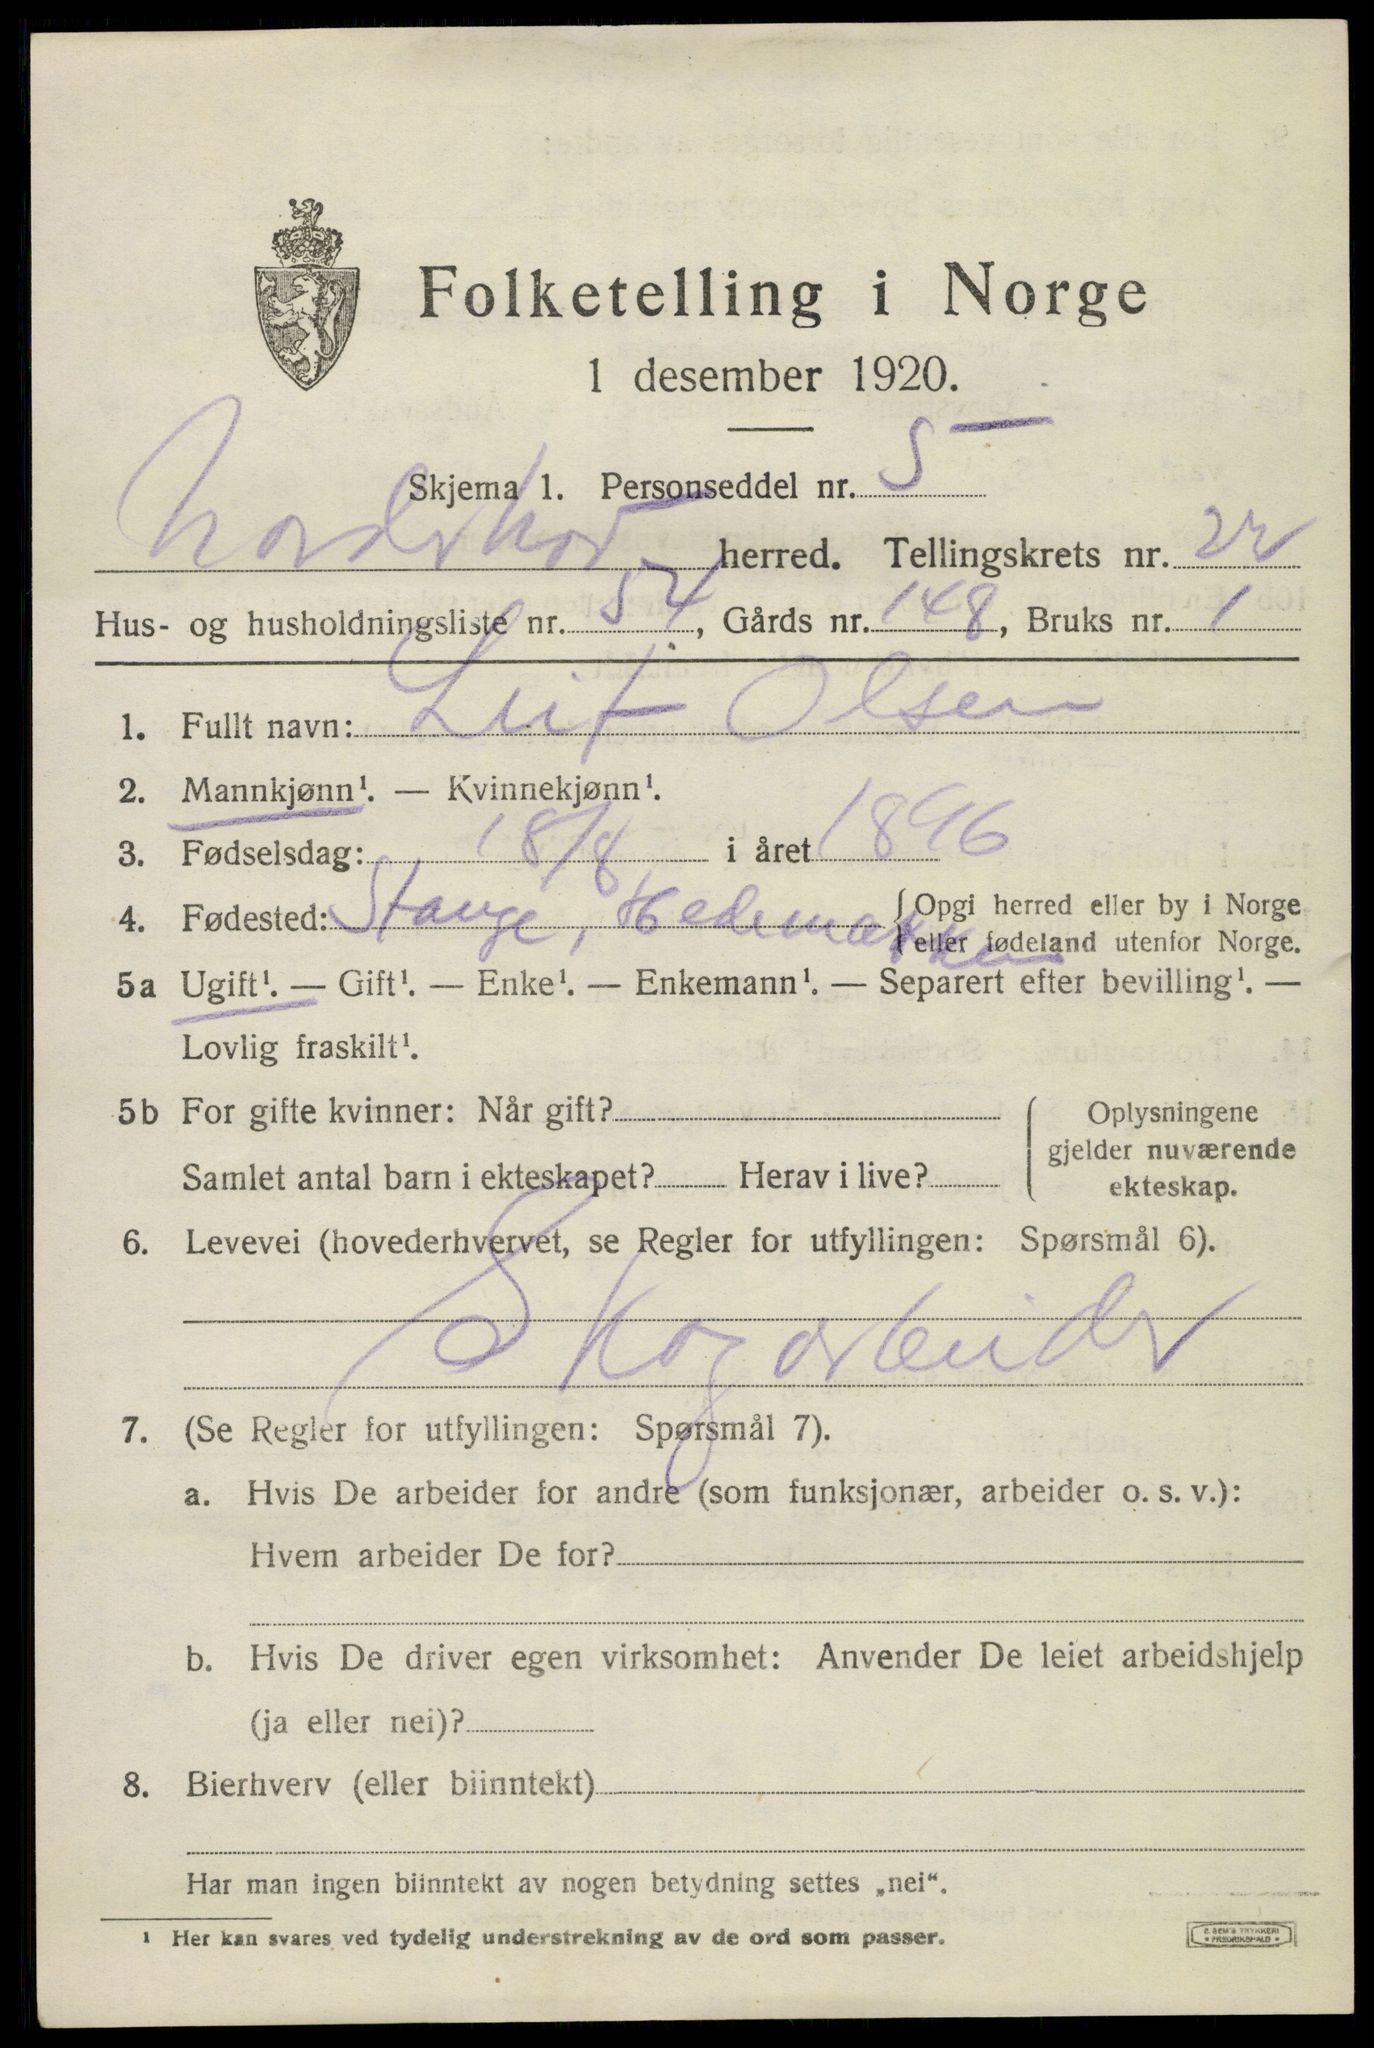 Folketelling i Norge
1 desember 1920.
Skjema 1. Personseddel nr. 5
Norderhov herred. Tellingskrets nr. 22
Hus- og husholdningsliste nr. 54, Gårds nr. 148, Bruks nr. 1
1. Fullt navn: Leif Olsen
2. Mannkjønn¹. — Kvinnekjønn¹.
3. Fødselsdag: 18/8 i året 1896
4. Fødested: Stange, Hedemarken {Opgi herred eller by i Norge
eller fødeland utenfor Norge.
5a Ugift¹. — Gift¹. — Enke¹. — Enkemann¹. — Separert efter bevilling¹. —
Lovlig fraskilt¹.
5b For gifte kvinner: Når gift?
Samlet antal barn i ekteskapet? Herav i live?
Oplysningene
gjelder nuværende
ekteskap.
6. Levevei (hovederhvervet, se Regler for utfyllingen: Spørsmål 6).
Skogarbeider
7. (Se Regler for utfyllingen: Spørsmål 7).
a. Hvis De arbeider for andre (som funksjonær, arbeider o. s. v.):
Hvem arbeider De for?
b. Hvis De driver egen virksomhet: Anvender De leiet arbeidshjelp
(ja eller nei)?
8. Bierhverv (eller biinntekt)
Har man ingen biinntekt av nogen betydning settes „nei“.
¹ Her kan svares ved tydelig understrekning av de ord som passer.
E. SEM'S TRYKKERI
• FREDRIKSHALD •